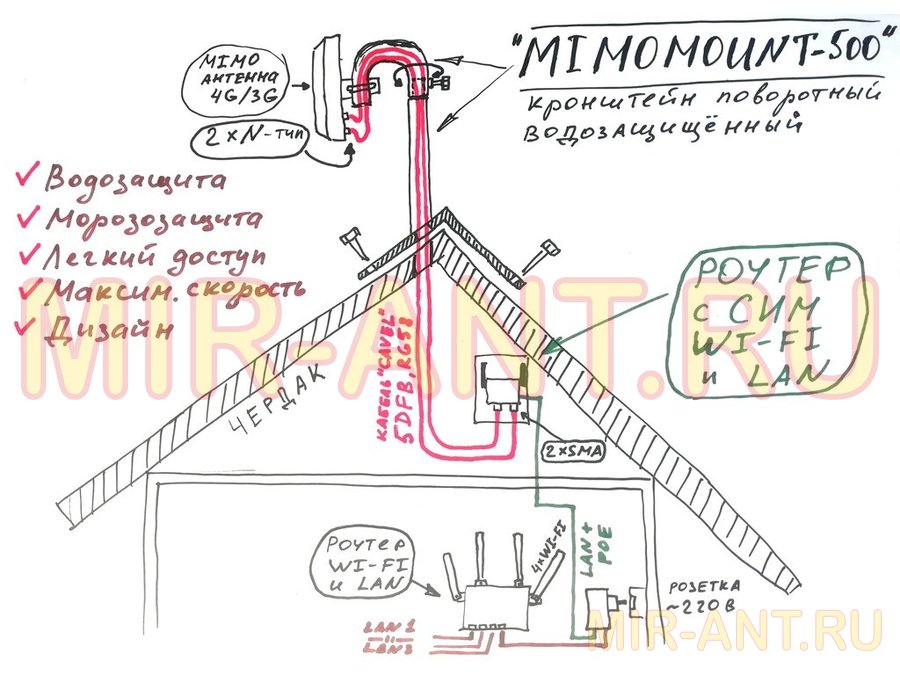 "MIMOMOUNT-500"
кронштейн поворотный
водозащищённый
MIMO
АНТЕННА
4G/3G
2xN-тип
✓ Водозащита
✓ Морозозащита
✓ Легкий доступ
✓ Максим. скорость
✓ Дизайн
MIR-ANT.RU
РОУТЕР
с СИМ
WI-FI
и LAN
КАБЕЛЬ "CAVEL"
5DFB, RG58
ЧЕРДАК
2xSMA
РОУТЕР
WI-FI
и LAN
4xWI-FI
LAN+
POE
РОЗЕТКА
~220В
LAN1
LAN3
MIR-ANT.RU